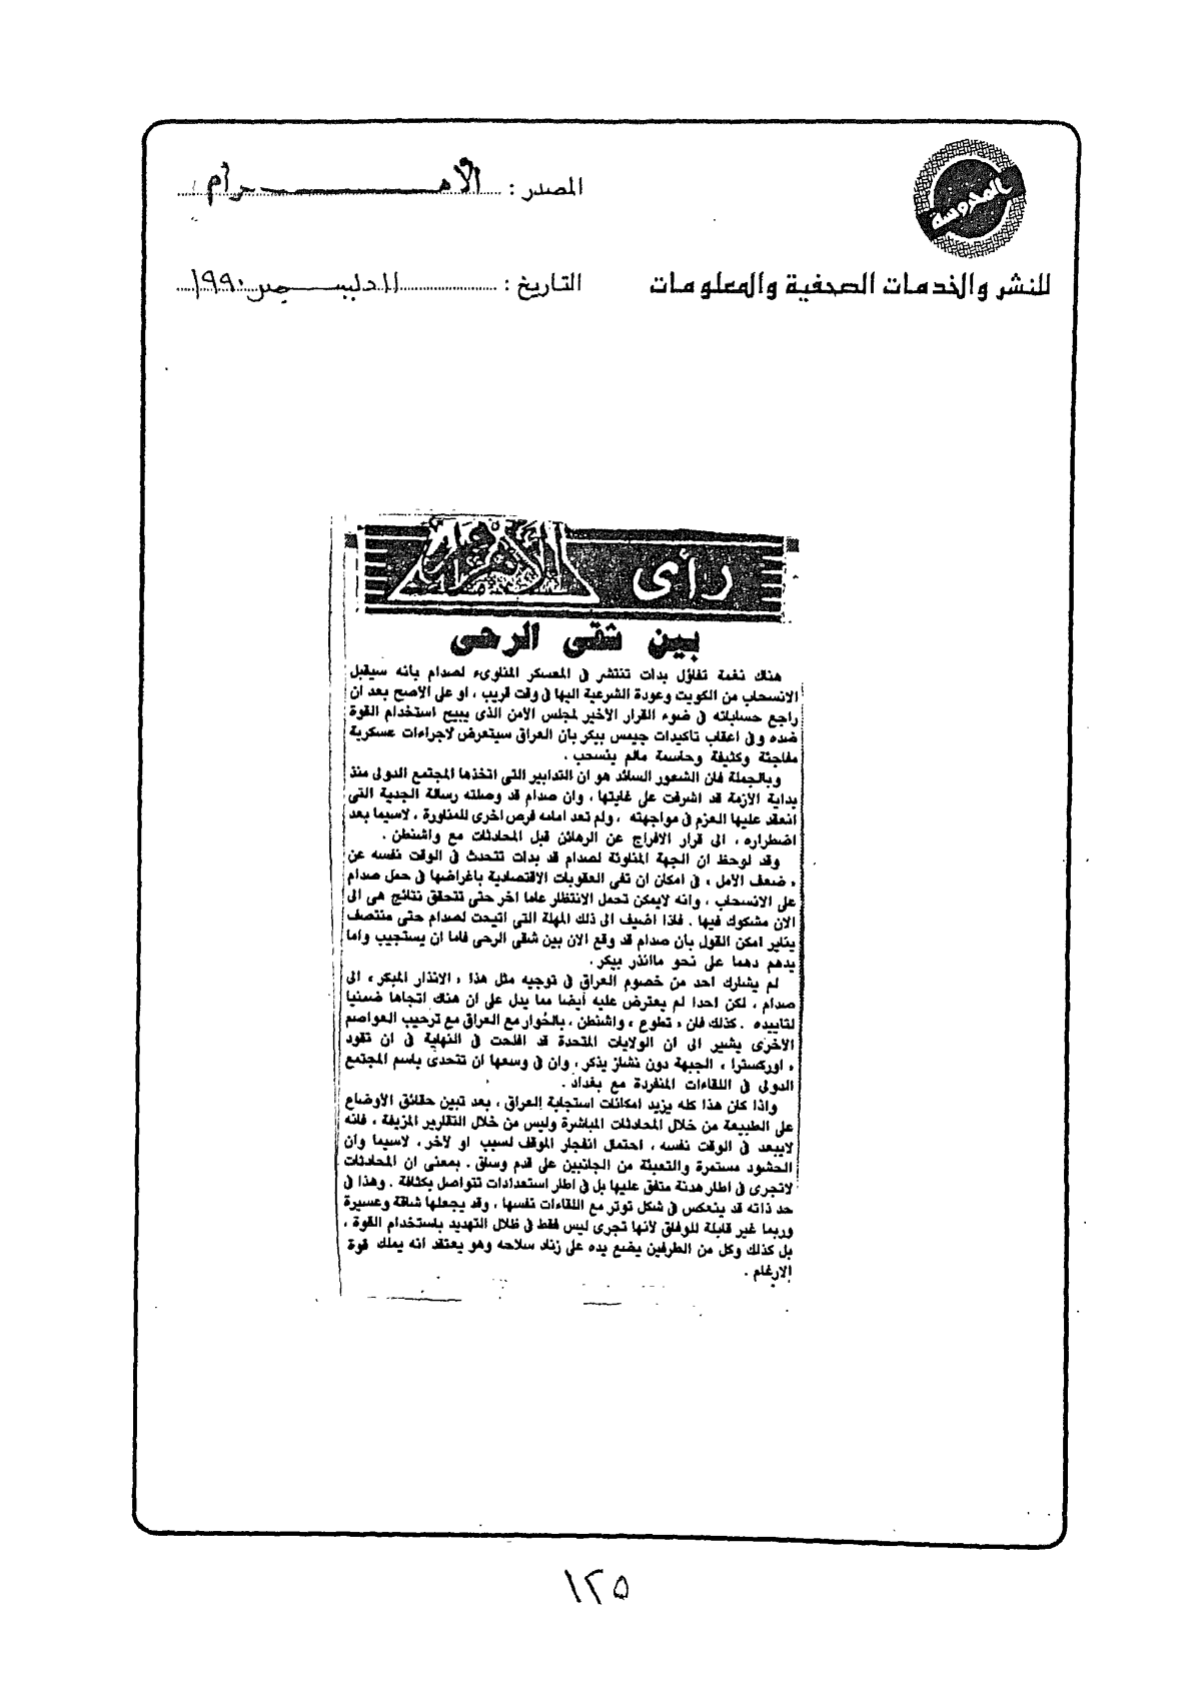 المحروسة
للنشر والخدمات الصحفية والمعلومات
المصدر : الأهرام
التاريخ : ١١ ديسمبر ١٩٩٠
رأى الأهرام
بين شقى الرحى
هناك نغمة تفاؤل بدات تنتشر فى المعسكر المناوىء لصدام بأنه سيقبل
الانسحاب من الكويت وعودة الشرعية اليها فى وقت قريب ، او على الاصح بعد ان
راجع حساباته فى ضوء القرار الأخير لمجلس الامن الذى يبيح استخدام القوة
ضده وفى اعقاب تاكيدات جيمس بيكر بان العراق سيتعرض لاجراءات عسكرية
مفاجئة وكثيفة وحاسمة مالم ينسحب .
وبالجملة فان الشعور السائد هو ان التدابير التى اتخذها المجتمع الدولى منذ
بداية الازمة قد اشرفت على غايتها ، وان صدام قد وصلته رسالة الجدية التى
انعقد عليها العزم فى مواجهته ، ولم تعد امامه فرص اخرى للمناورة ، لاسيما بعد
اضطراره ، الى قرار الافراج عن الرهائن قبل المحادثات مع واشنطن .
وقد لوحظ ان الجهة المناوئة لصدام قد بدات تتحدث فى الوقت نفسه عن
« ضعف الامل » فى امكان ان تفى العقوبات الاقتصادية باغراضها فى حمل صدام
على الانسحاب ، وانه لايمكن تحمل الانتظار عاما اخر حتى تتحقق نتائج هى الى
الان مشكوك فيها . فاذا اضيف الى ذلك المهلة التى اتيحت لصدام حتى منتصف
يناير امكن القول بان صدام قد وقع الان بين شقى الرحى فاما ان يستجيب واما
يدهم دهما على نحو ماانذر بيكر .
لم يشارك احد من خصوم العراق فى توجيه مثل هذا « الانذار المبكر » الى
صدام ، لكن احدا لم يعترض عليه أيضا مما يدل على ان هناك اتجاها ضمنيا
لتاييده . كذلك فان « تطوع » واشنطن ، بالحوار مع العراق مع ترحيب العواصم
الاخرى يشير الى ان الولايات المتحدة قد افلحت فى النهاية فى ان تقود
« اوركسترا » الجبهة دون نشاز يذكر ، وان فى وسعها ان تتحدى باسم المجتمع
الدولى فى اللقاءات المنفردة مع بغداد .
واذا كان هذا كله يزيد امكانات استجابة العراق ، بعد تبين حقائق الأوضاع
على الطبيعة من خلال المحادثات المباشرة وليس من خلال التقارير المزيفة ، فانه
لايبعد فى الوقت نفسه ، احتمال انفجار الموقف لسبب او لآخر ، لاسيما وان
الحشود مستمرة والتعبئة من الجانبين على قدم وساق . بمعنى ان المحادثات
لاتجرى فى اطار هدنة متفق عليها بل فى اطار استعدادات تتواصل بكثافة . وهذا فى
حد ذاته قد ينعكس فى شكل توتر مع اللقاءات نفسها ، وقد يجعلها شاقة وعسيرة
وربما غير قابلة للوفاق لأنها تجرى ليس فقط فى ظلال التهديد باستخدام القوة ،
بل كذلك وكل من الطرفين يضع يده على زناد سلاحه وهو يعتقد انه يملك قوة
الارغام .
١٢٥